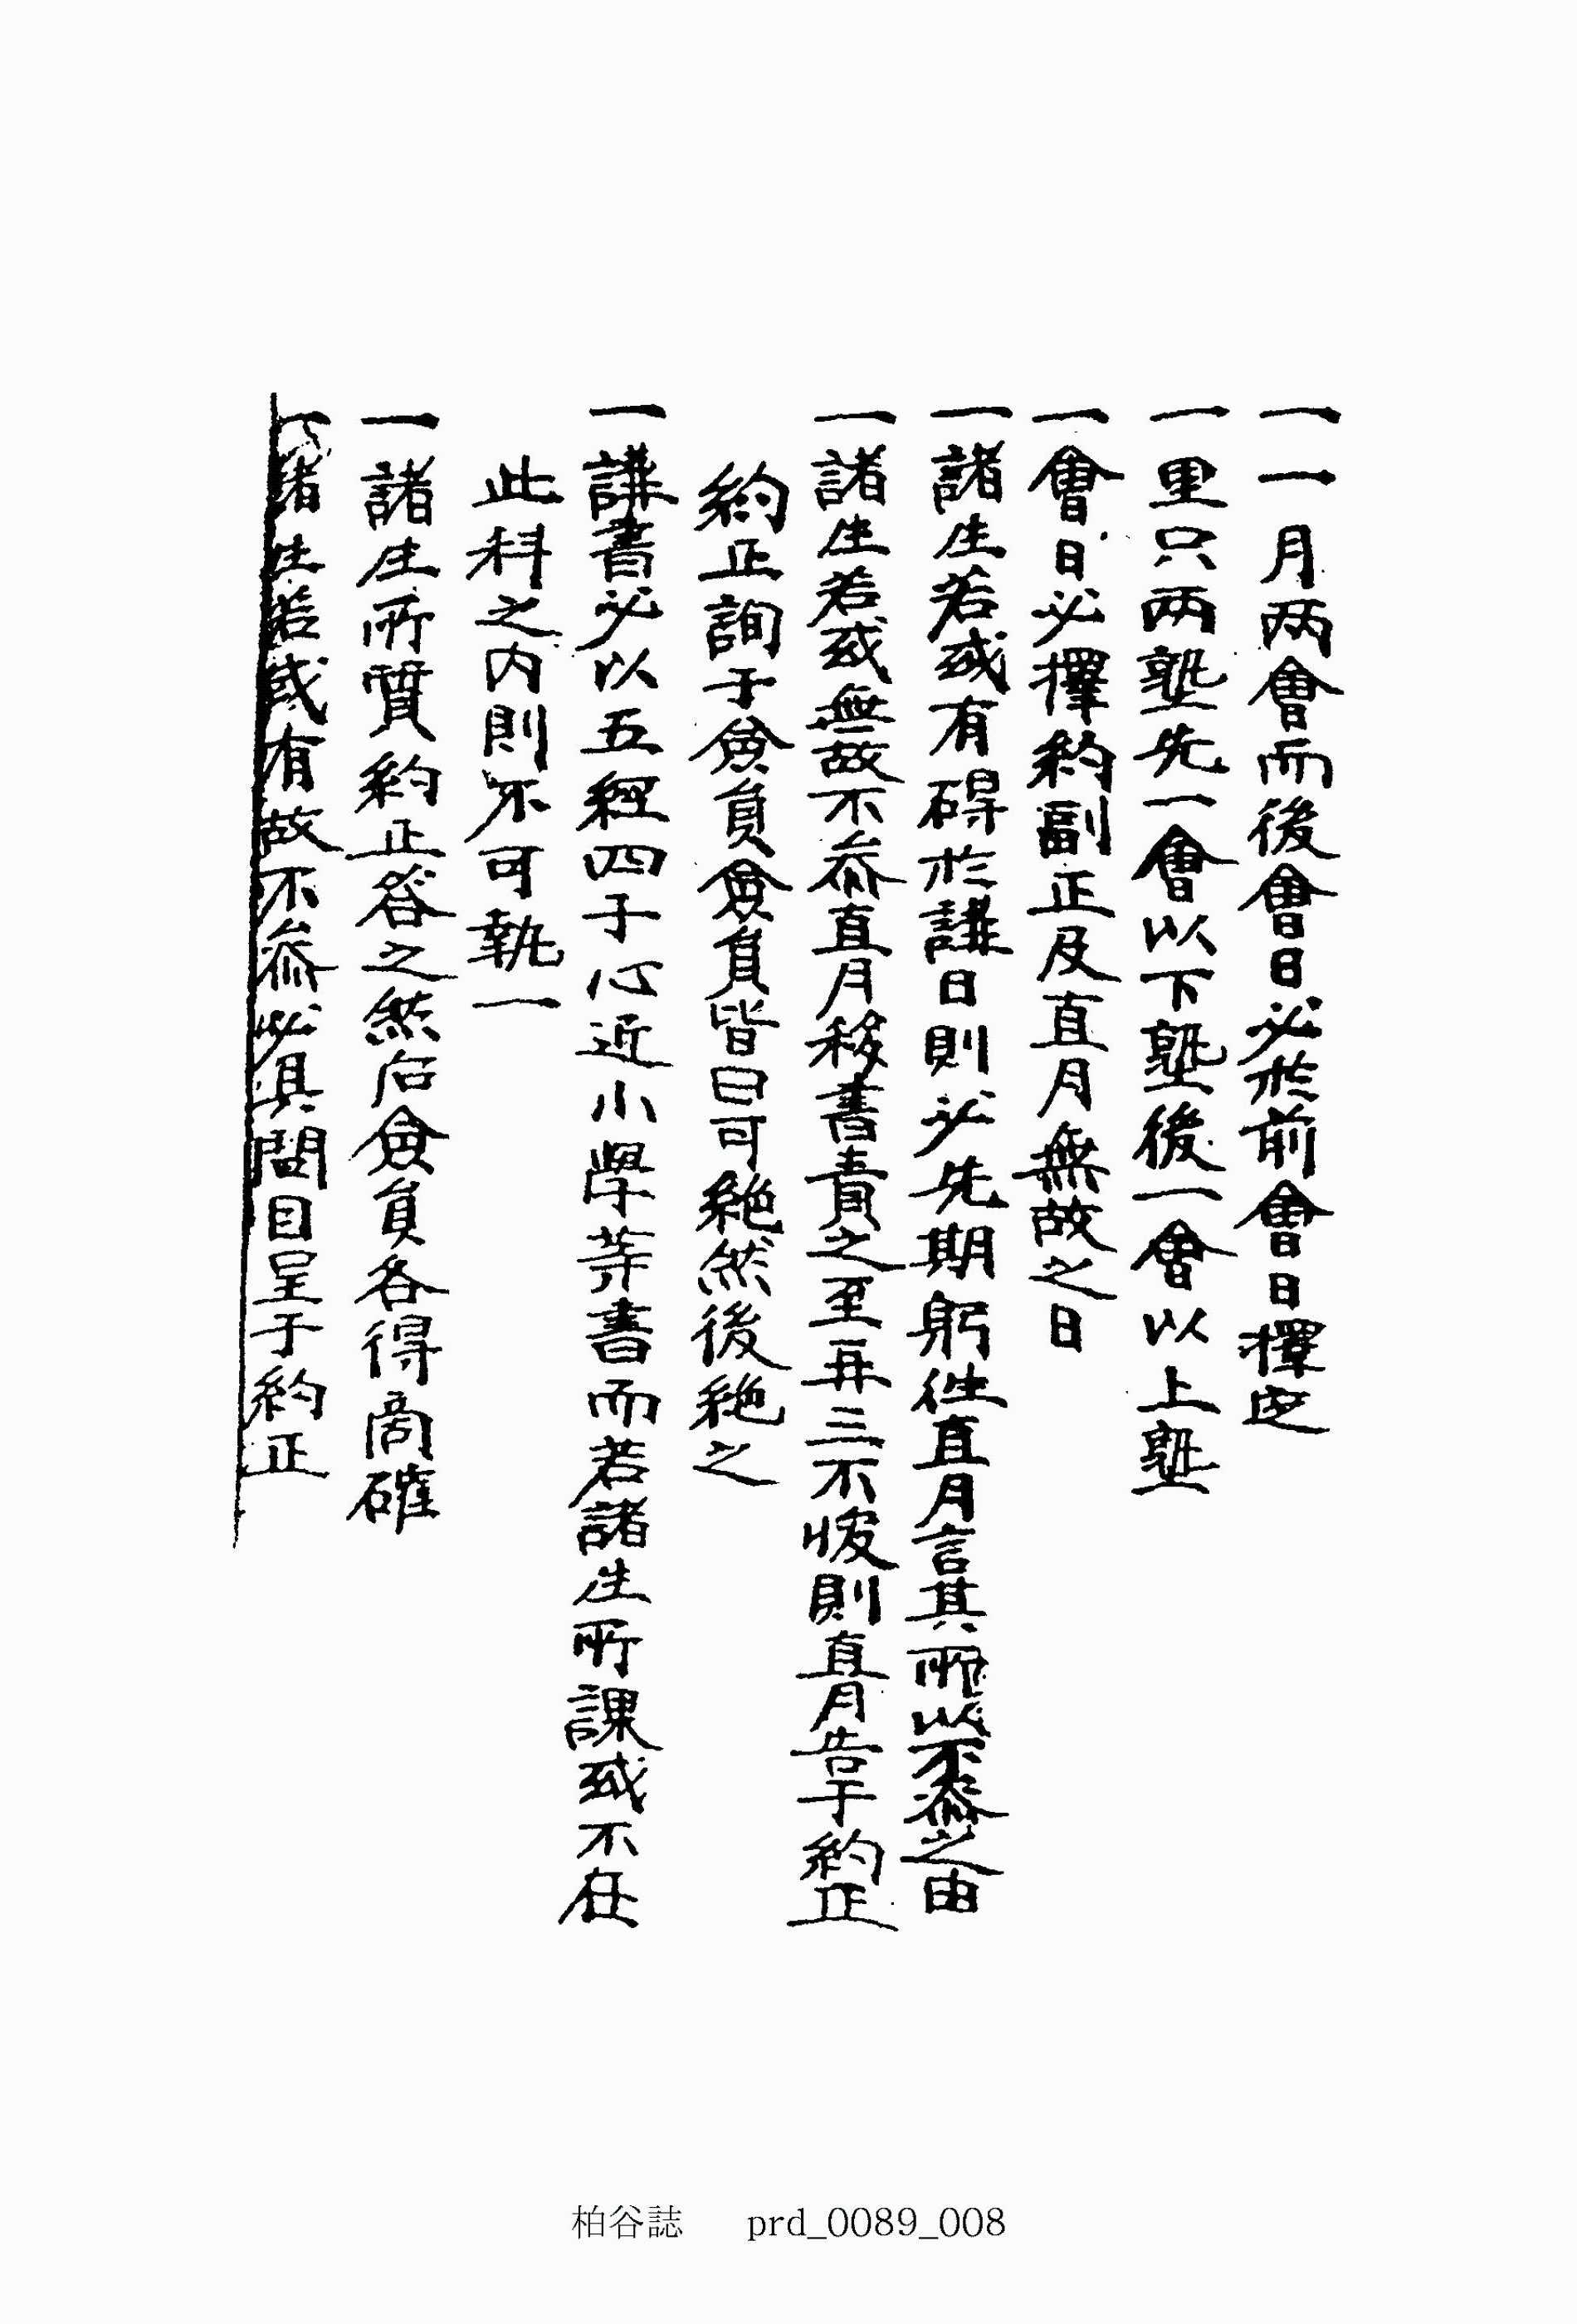 一一月两會而後會日必於前會日擇定
一里只两塾先一會以下塾後一會以上塾
一會日必擇約副正及直月無故之日
一諸生若或有碍於講日則必先期躬往直月言其所以不叅之由
一諸生若或無故不叅直月移書責之至再三不悛則直月告于約正
約正詢于僉員僉員皆曰可絶然後絶之
一講書必以五經四子心近小學等書而若諸生所課或不在
此科之内則不可執一
一諸生所質約正答之然后僉員各得商確
一諸生若或有故不叅必具問目呈于約正
柏谷誌 prd_0089_008